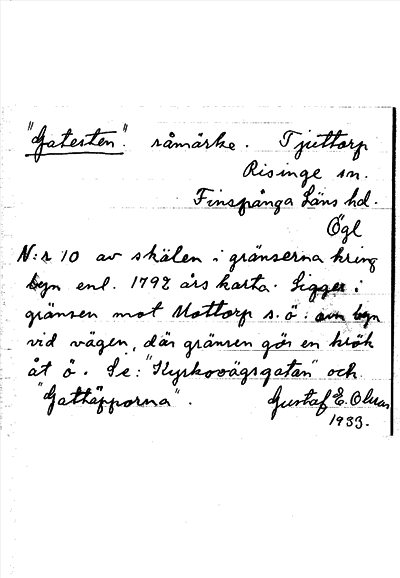 "Gatesten". råmärke. Tjuttorp
Risinge sn.
Finspånga Läns hd.
Ögl
N:r 10 av skälen i gränserna kring
byn enl. 1792 års karta. Ligger i
gränsen mot Mottorp s.ö. om byn
vid vägen, där gränsen gör en krök
åt ö. Se: "Kyrkovägsgatan" och
"Gattäpporna". Gustaf E. Olsson
1933.